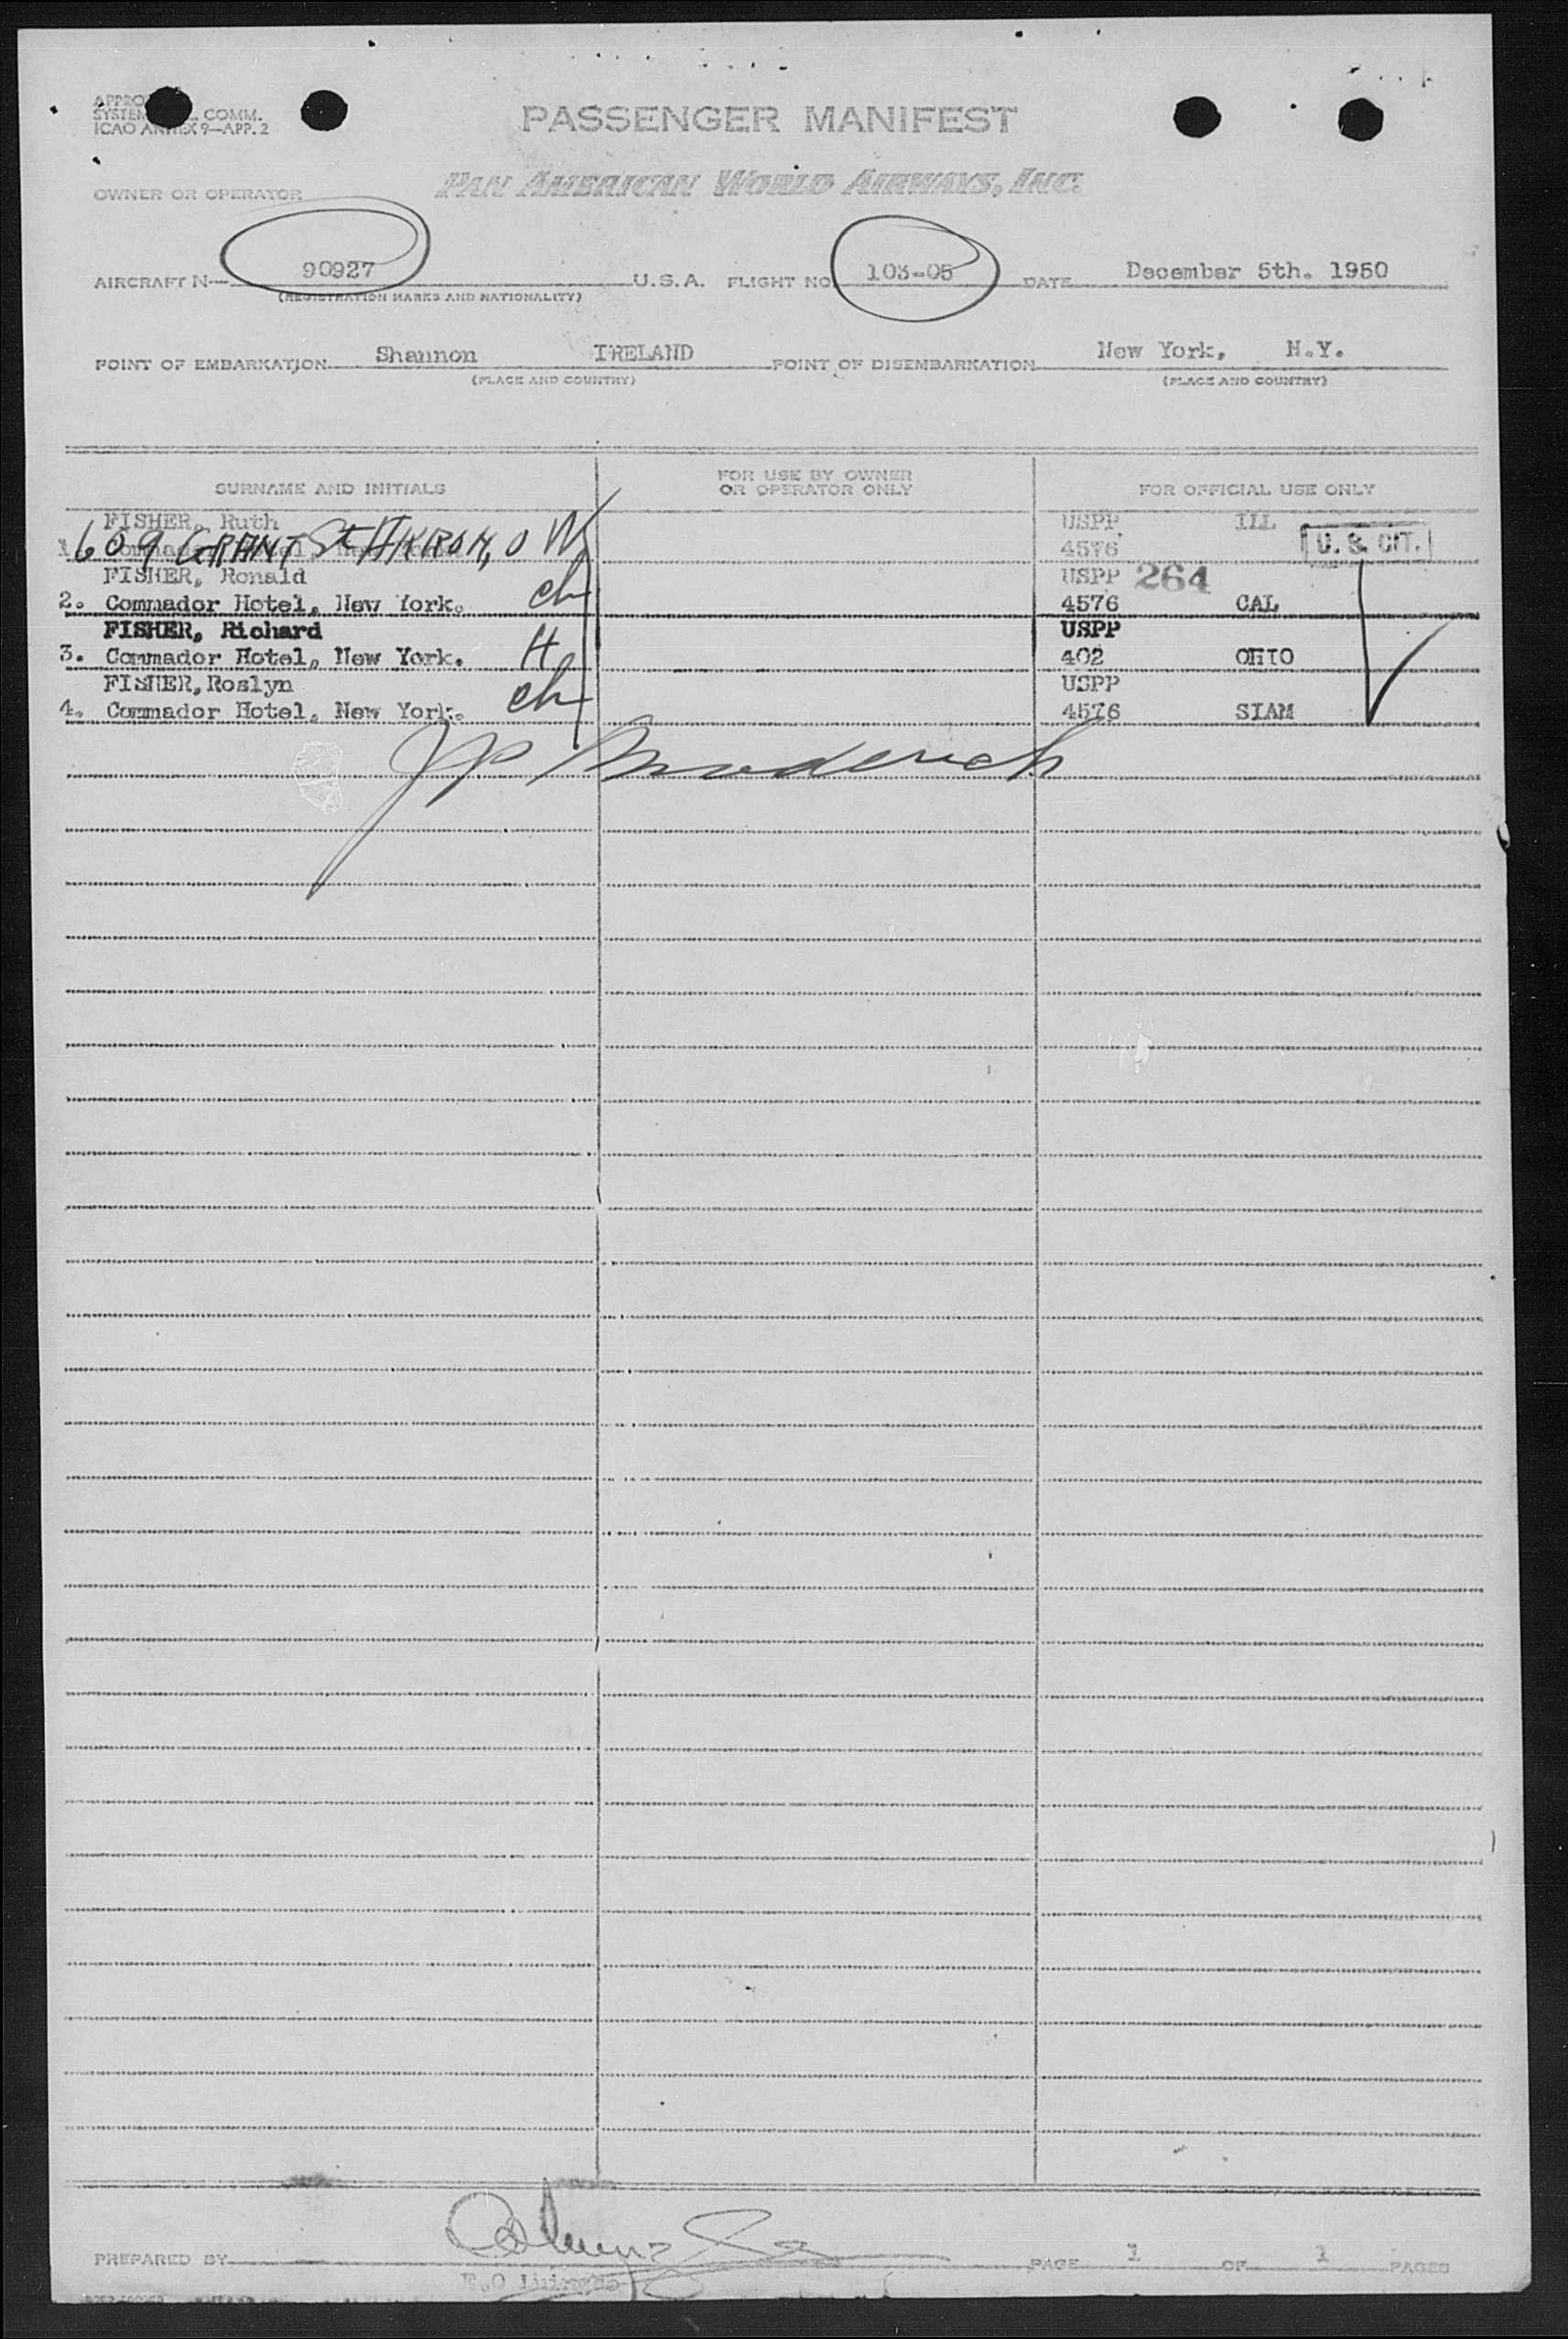 PASSENGER MANIFEST
COMM.
ICAO ANNEX 9—APP. 2
OWNER OR OPERATOR
PAN AMERICAN WORLD AIRWAYS, INC.
AIRCRAFT N— 90927 U.S.A. FLIGHT NO 103-05 DATE December 5th. 1950
(REGISTRATION MARKS AND NATIONALITY)
POINT OF EMBARKATION Shannon IRELAND POINT OF DISEMBARKATION New York, N.Y.
(PLACE AND COUNTRY) (PLACE AND COUNTRY)
SURNAME AND INITIALS FOR USE BY OWNER OR OPERATOR ONLY FOR OFFICIAL USE ONLY
FISHER, Ruth USPP ILL
1. 609 GRANT St AKRON, O W 4576 U. S. CIT.
FISHER, Ronald USPP 264
2. Commador Hotel, New York. ch 4576 CAL
FISHER, Richard USPP
3. Commador Hotel, New York. H 402 OHIO
FISHER, Roslyn USPP
4. Commador Hotel, New York. ch 4576 SIAM
PREPARED BY PAGE 1 OF 1 PAGES